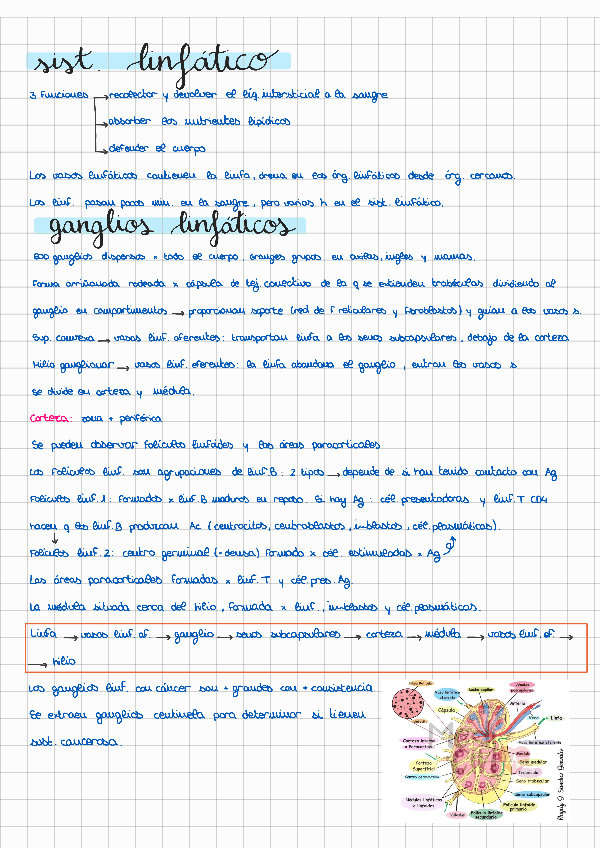 sist. linfático
3 Funciones → recolectar y devolver el líq. intersticial a la sangre
→ absorber los nutrientes lipídicos
→ defender el cuerpo
Los vasos linfáticos contienen la linfa, drena en los órg. linfáticos desde órg. cercanos.
Los linf. pasan pocos min. en la sangre, pero varias h en el sist. linfático.
ganglios linfáticos
600 ganglios dispersos x todo el cuerpo. Grandes grupos en axilas, ingles y mamas.
Forma arriñonada rodeada x cápsula de tej. conectivo de la q se extienden trabéculas dividiendo al
ganglio en compartimentos → proporcionan soporte (red de f reticulares y fibroblastos) y guían a los vasos s.
Sup. convexa → vasos linf. aferentes: transportan linfa a los senos subcapsulares, debajo de la corteza
Hilio ganglionar → vasos linf. eferentes: la linfa abandona el ganglio, entran los vasos s.
Se divide en corteza y médula.
Corteza: zona + periférica
Se pueden observar folículos linfoides y las áreas paracorticales
Los folículos linf. son agrupaciones de linf. B: 2 tipos → depende de si han tenido contacto con Ag
Folículos linf. 1: formados x linf. B maduros en reposo. Si hay Ag: cél. presentadoras y linf. T CD4
hacen q los linf. B produzcan Ac (centrocitos, centroblastos, inblastos, cél. plasmáticas).
Folículos linf. 2: centro germinal (- densa) formado x cél. estimuladas x Ag
Las áreas paracorticales formadas x linf. T y cél. pres. Ag.
La médula situada cerca del hilio, formada x linf., inblastos y cél. plasmáticas.
Linfa → vasos linf. af. → ganglio → senos subcapsulares → corteza → médula → vasos linf. ef. →
→ hilio
Los ganglios linf. con cáncer son + grandes con + consistencia
Se extraen ganglios centinela para determinar si tienen
sust. cancerosa.
Lecho capilar
Vaso linfático aferente
Arteria
Vena
Linfa
Cápsula
Vaso linfático eferente
Corteza Interna o Paracorteza
Médula
Seno medular
Corteza Superficial
Trabécula
Seno trabecular
Centro germinativo
Seno subcapsular
Nódulos linfáticos o linfoides
Folículo linfoide primario
Válvulas
Folículo linfoide secundario